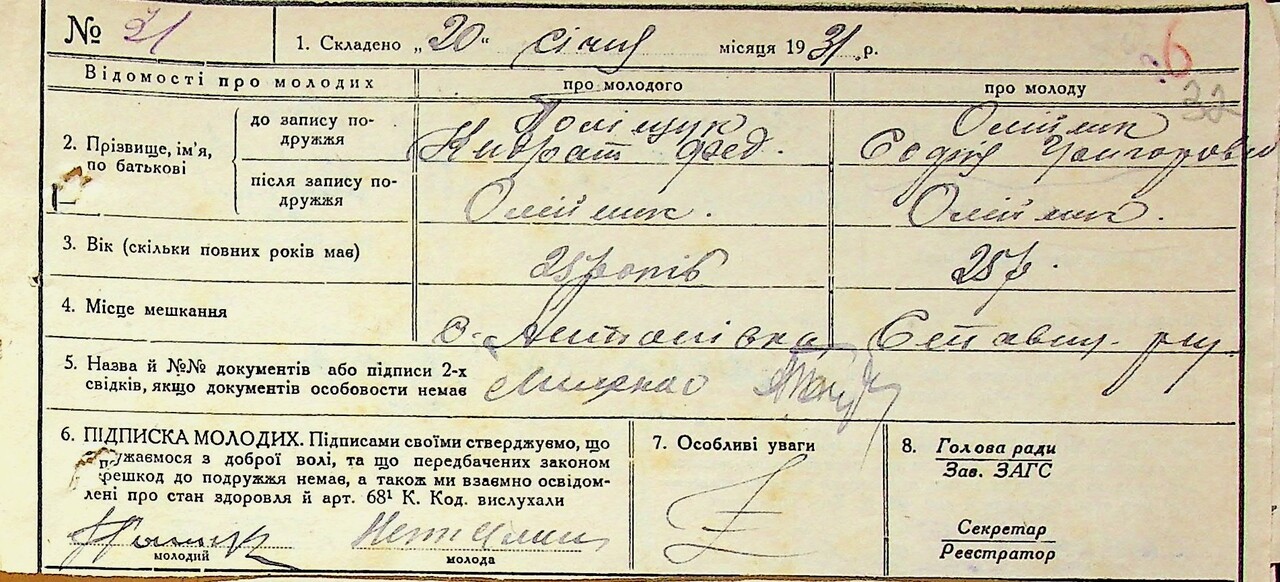 № 21
1. Складено „20“ січня місяця 1931 р.
6
32
Відомості про молодих
про молодого
про молоду
2. Прізвище, ім'я, по батькові
до запису подружжя
Поліщук
Кидрат Фед.
Олійник
Софія Григоровна
після запису подружжя
Олійник.
Олійник.
3. Вік (скільки повних років має)
25 років
25 р.
4. Місце мешкання
с. Антонівка, Ставищ. р-ну.
5. Назва й №№ документів або підписи 2-х
свідків, якщо документів особовости немає
6. ПІДПИСКА МОЛОДИХ. Підписами своїми стверджуємо, що
ужаємося з доброї волі, та що передбачених законом
решкод до подружжя немає, а також ми взаємно освідом-
лені про стан здоровля й арт. 68¹ К. Код. вислухали
молодий
молода
7. Особливі уваги
8. Голова ради
Зав. ЗАГС
Секретар
Реєстратор